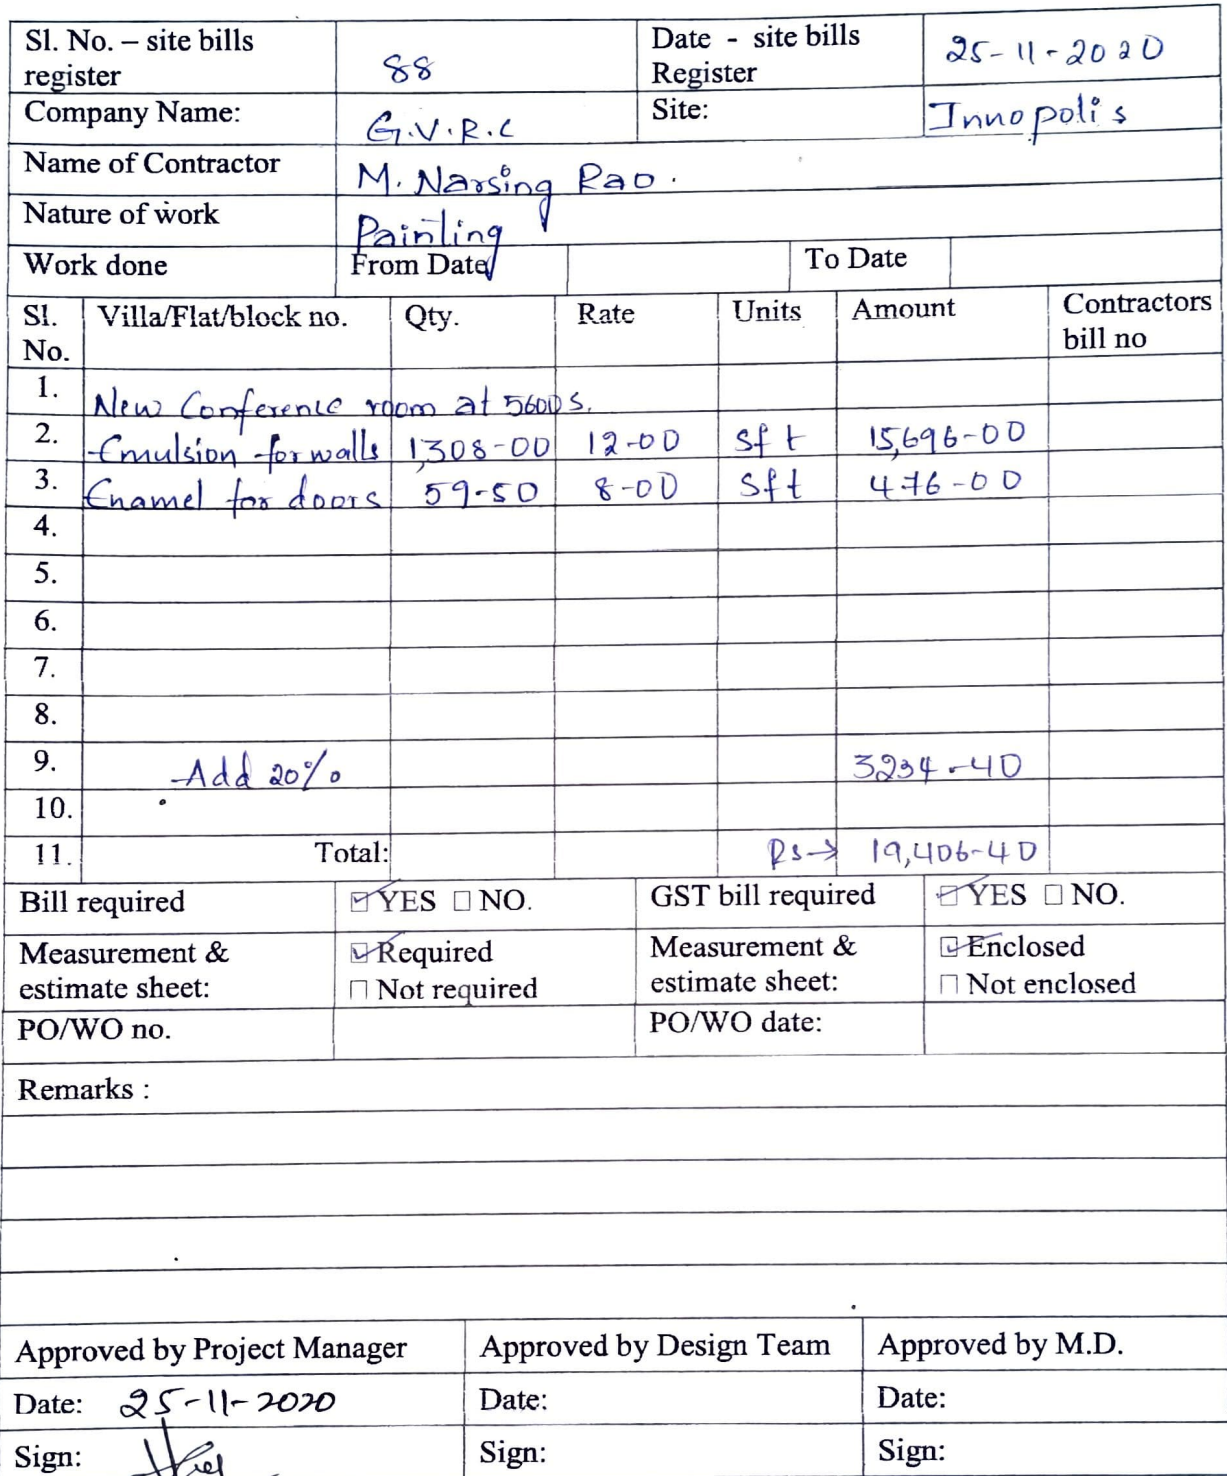 Sl. No. – site bills register 88 Date - site bills Register 25-11-2020
Company Name: G.V.R.C Site: Innopolis
Name of Contractor M. Narsing Rao.
Nature of work Painting
Work done From Date To Date
Sl. No. Villa/Flat/block no. Qty. Rate Units Amount Contractors bill no
1. New Conference room at 5600 S.
2. Emulsion for walls 1,308-00 12-00 Sft 15,696-00
3. Enamel for doors 59-50 8-00 Sft 476-00
4.
5.
6.
7.
8.
9. Add 20% 3234-40
10.
11. Total: Rs→ 19,406-40
Bill required ☑ YES □ NO. GST bill required ☑ YES □ NO.
Measurement & estimate sheet: ☑ Required □ Not required Measurement & estimate sheet: ☑ Enclosed □ Not enclosed
PO/WO no. PO/WO date:
Remarks :
Approved by Project Manager Approved by Design Team Approved by M.D.
Date: 25-11-2020 Date: Date:
Sign: Sign: Sign: